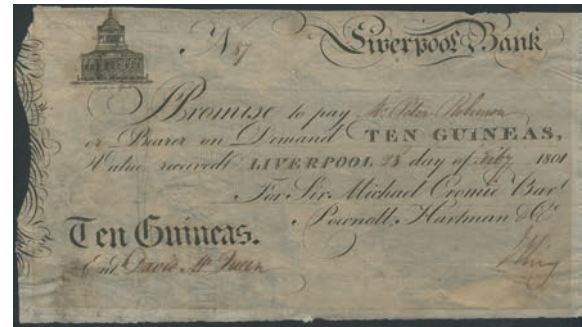 No 87 Liverpool Bank
I Promise to pay Mr. Peter Robinson
or Bearer on Demand TEN GUINEAS,
Value received LIVERPOOL 28 day of Feby 1801
For Sir Michael Cromie Bart
Pownoll, Hartman & Co.
Ten Guineas.
Entd David Mc